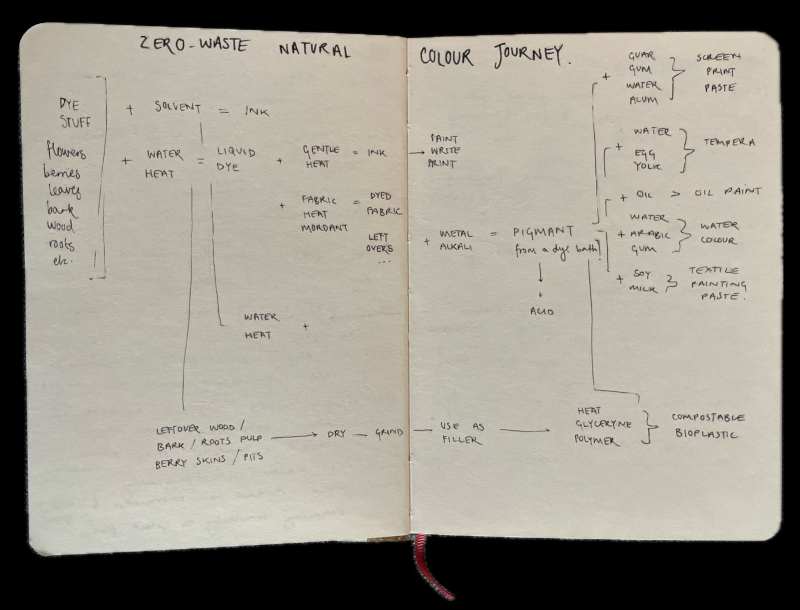 ZERO-WASTE NATURAL COLOUR JOURNEY.
DYE
STUFF
flowers
berries
leaves
bark
wood
roots
etc.
+ SOLVENT = INK
+ WATER = LIQUID + GENTLE = INK → PAINT
HEAT DYE HEAT WRITE
PRINT
+ FABRIC = DYED
HEAT FABRIC
MORDANT
LEFT
OVERS
...
+ METAL = PIGMANT
ALKALI from a dye bath!
↓
+
ACID
WATER +
HEAT
+ GUAR } SCREEN
GUM PRINT
WATER PASTE
ALUM
+ WATER } TEMPERA
EGG
YOLK
+ OIL > OIL PAINT
WATER } WATER
+ ARABIC COLOUR
GUM
+ SOY } TEXTILE
MILK PAINTING
PASTE.
LEFTOVER WOOD/
BARK/ROOTS PULP → DRY — GRIND — USE AS →
BERRY SKINS/PITS FILLER
HEAT } COMPOSTABLE
GLYCERYNE BIOPLASTIC
POLYMER